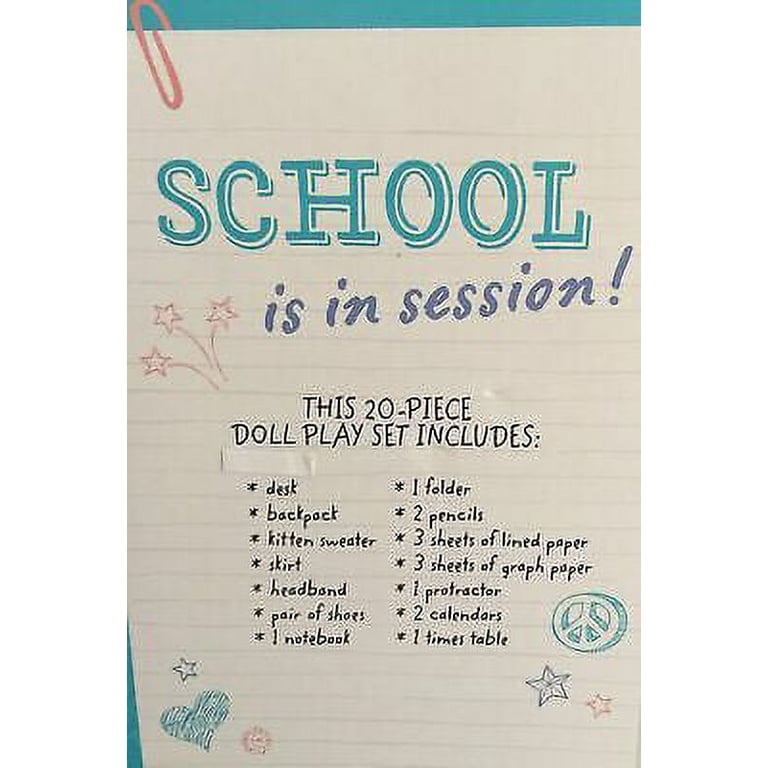 SCHOOL
is in session!
THIS 20-PIECE
DOLL PLAY SET INCLUDES:
* desk
* backpack
* kitten sweater
* skirt
* headband
* pair of shoes
* 1 notebook
* 1 folder
* 2 pencils
* 3 sheets of lined paper
* 3 sheets of graph paper
* 1 protractor
* 2 calendars
* 1 times table